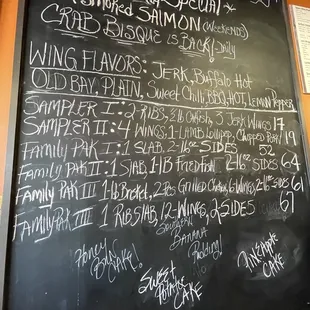 Special
Smoked Salmon (Weekends)
CRAB BISQUE is BACK! Daily
WING FLAVORS: Jerk, Buffalo Hot
OLD BAY, PLAIN, Sweet Chili, BBQ, HOT, Lemon Pepper
SAMPLER I: 2 RIBS, Fish, 3 Jerk WINGS 17
SAMPLER II: 4 WINGS, 1-LAMB Lollipop, Chopped Pork 19
Family PAK I: 1 SLAB, 2-16oz SIDES 52
Family PAK II: 1 SLAB, 1-lb Fried Fish, 2-16oz SIDES 64
Family PAK III 1-lb Brisket, 2Pcs Grilled Chicken, 6-Wings, 2-16oz SIDES 61
Family PAK IIII 1 RIB SLAB, 12-WINGS, 2 SIDES 67
Honey
CAKE!
SOUTHERN
BANANA
Pudding!
SWEET
Potatoe
CAKE
PINEAPPLE
CAKE